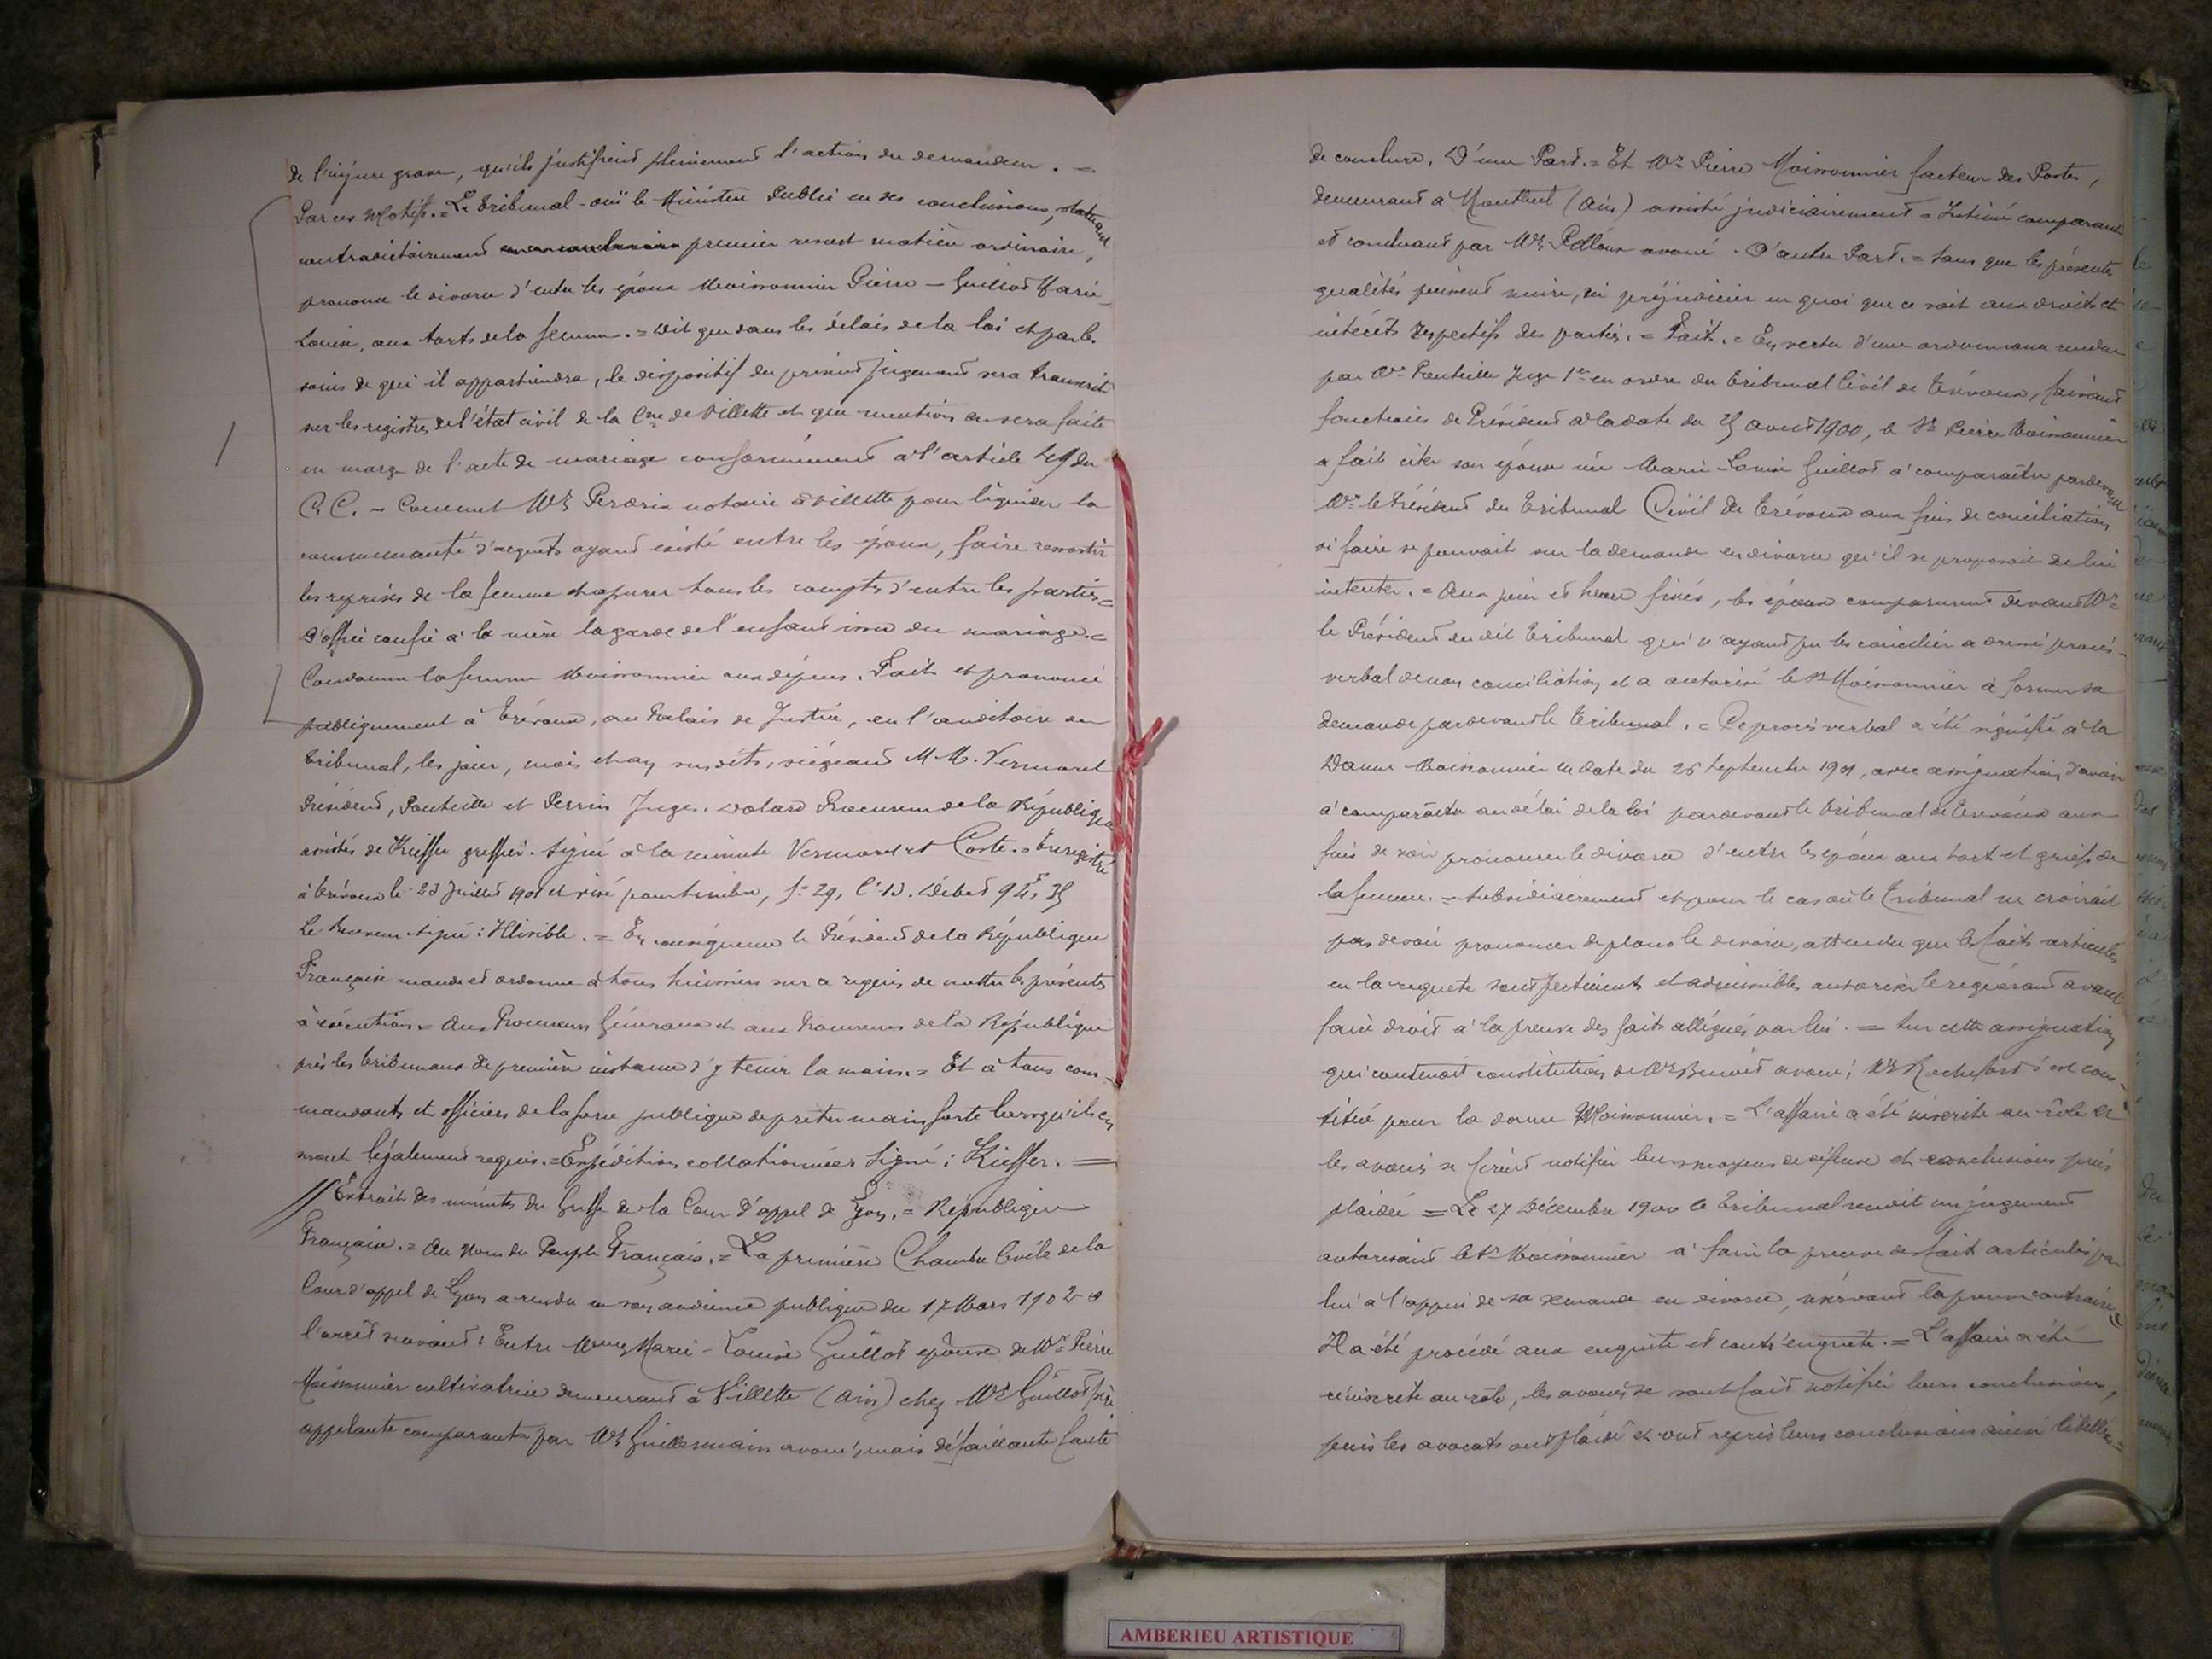 de l'injure grave, qu'ils justifient pleinement l'action du demandeur. =
Par ces Motifs. = Le Tribunal – ouï le Ministère Public en ses conclusions, statuant
contradictoirement premier ressort matière ordinaire,
prononce le divorce d'entre les époux Moissonnier Pierre – Guillot Marie-
Louise, aux torts de la femme. = Dit que dans les délais de la loi et par les
soins de qui il appartiendra, le dispositif du présent jugement sera transcrit
sur les registres de l'état civil de la Cne de Villette et que mention en sera faite
en marge de l'acte de mariage conformément à l'article 49 du
C. C. – Commet Me Perdrix notaire à Villette pour liquider la
communauté d'acquets ayant existé entre les époux, faire ressortir
les reprises de la femme et apurer tous les comptes d'entre les parties =
D'office confie à la mère la garde de l'enfant issu du mariage. =
Condamne la femme Moissonnier aux dépens. Fait et prononcé
publiquement à Trévoux, au Palais de Justice, en l'auditoire du
tribunal, les jour, mois et an susdits, siégeant M.M. Vermorel
Président, Ponteille et Perrin Juges. Dolard Procureur de la République
assistés de Kieffer greffier. Signé à la minute Vermorel et Coste. = Enregistré
à Trévoux le 23 Juillet 1901 et visé pour timbre, fo 29, Co 13. Débet
Le Receveur signé : Illisible. = En conséquence le Président de la République
Française mande et ordonne à tous huissiers sur ce requis de mettre les présentes
à exécution = Aux Procureurs Généraux et aux Procureurs de la République
près les tribunaux de première instance d'y tenir la main. = Et à tous com-
mandants et officiers de la force publique de prêter main forte lorsqu'ils en
seront légalement requis. = Expédition collationnée Signé : Kieffer. =
// Extrait des minutes du Greffe de la Cour d'appel de Lyon. = République
Française. = Au Nom du Peuple Français. = La première Chambre Civile de la
Cour d'appel de Lyon a rendu en son audience publique du 17 Mars 1902
l'arrêt suivant : Entre Marie-Louise Guillot épouse de Mr Pierre
Moissonnier cultivatrice demeurant à Villette (Ain) chez Mr Guillot père
appelante comparante par Me Guillermain avoué, mais défaillante faute
de conclure. D'une Part. = Et Mr Pierre Moissonnier facteur des Postes,
demeurant à Montluel (Ain) assisté judiciairement = Intimé comparant
et concluant par Me Pelloux avoué. D'autre Part. = Sans que les présentes
qualités puissent nuire, ni préjudicier en quoi que ce soit aux droits et
intérêts respectifs des parties. = Fait. = En vertu d'une ordonnance rendue
par Mr Ponteille Juge 1er en ordre du Tribunal Civil de Trévoux, faisant
fonctions de Président à la date du août 1900, le Sr Pierre Moissonnier
a fait citer son épouse née Marie-Louise Guillot à comparaître pardevant
Mr le Président du Tribunal Civil de Trévoux aux fins de conciliation
si faire se pouvait sur la demande en divorce qu'il se proposait de lui
intenter. = Aux jour et heure fixés, les époux comparurent devant Mr
le Président du dit Tribunal qui n'ayant pu les concilier a dressé procès-
verbal de non conciliation et a autorisé le Sr Moissonnier à former sa
demande pardevant le Tribunal. = Ce procès verbal a été signifié à la
Dame Moissonnier en date du 25 Septembre 1901, avec assignation d'avoir
à comparaître au délai de la loi pardevant le tribunal de Trévoux aux
fins de voir prononcer le divorce d'entre les époux aux tort et griefs de
la femme. = Subsidiairement et pour le cas où le Tribunal ne croirait
pas devoir prononcer de plano le divorce, attendu que les faits articulés
en la requête sont pertinents et admissibles autoriser le requérant avant
faire droit à la preuve des faits allégués par lui. = Sur cette assignation
qui contenait constitution de Me Benoit avoué, Me Rochefort s'est cons-
titué pour la dame Moissonnier. = L'affaire a été inscrite au rôle et
les avoués se firent notifier leurs moyens de défense et conclusions puis
plaidée = Le 27 Décembre 1900 le Tribunal rendit un jugement
autorisant le Sr Moissonnier à faire la preuve des fait articulés par
lui à l'appui de sa demande en divorce, réservant la preuve contraire =
Il a été procédé aux enquête et contr'enquête. = L'affaire a été
réinscrite au rôle, les avoués se sont fait notifier leurs conclusions,
puis les avocats ont plaidé et ont repris leurs conclusions ainsi libellées =
AMBERIEU ARTISTIQUE